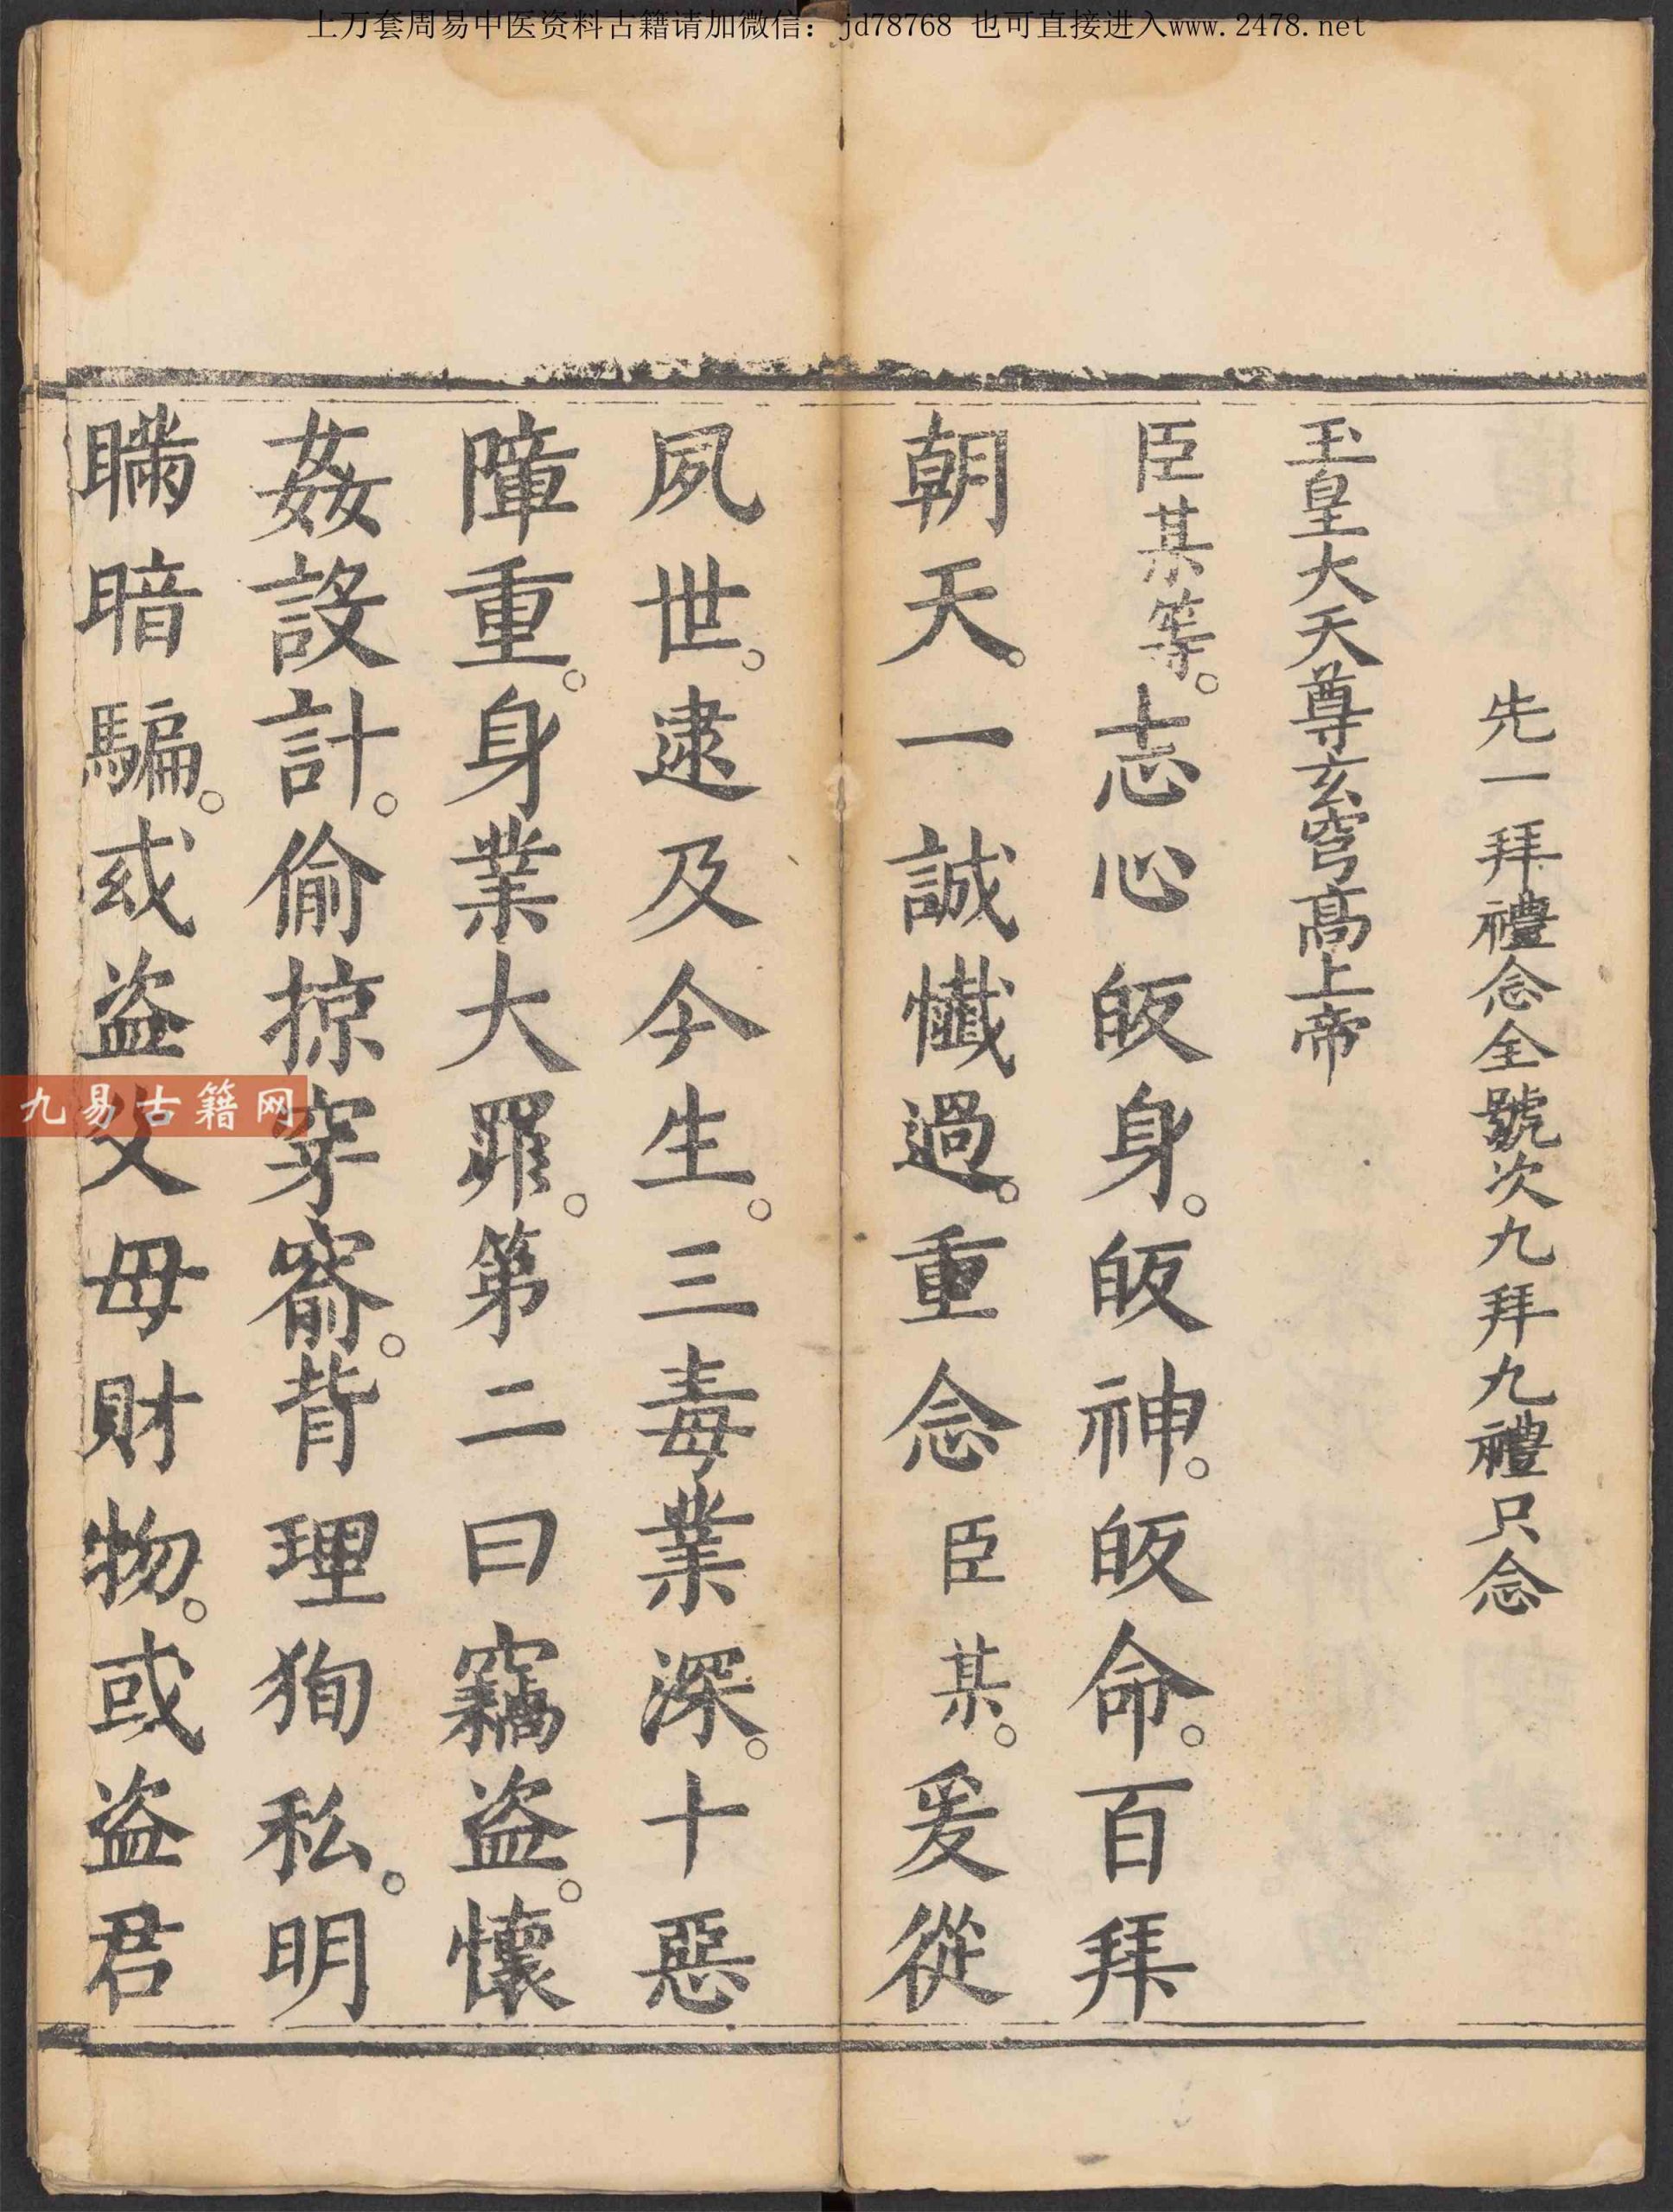 上万套周易中医资料古籍请加微信：jd78768 也可直接进入www.2478.net
先一拜禮念全號次九拜九禮只念
玉皇大天尊玄穹高上帝
臣某等。志心皈身。皈神。皈命。百拜
朝天。一誠懺過。重念臣某。爰從
夙世。逮及今生。三毒業深。十惡
障重。身業大罪。第二曰竊盜。懷
姦設計。偷掠穿窬。背理狥私。明
瞞暗騙。或盜父母財物。或盜君
九易古籍网